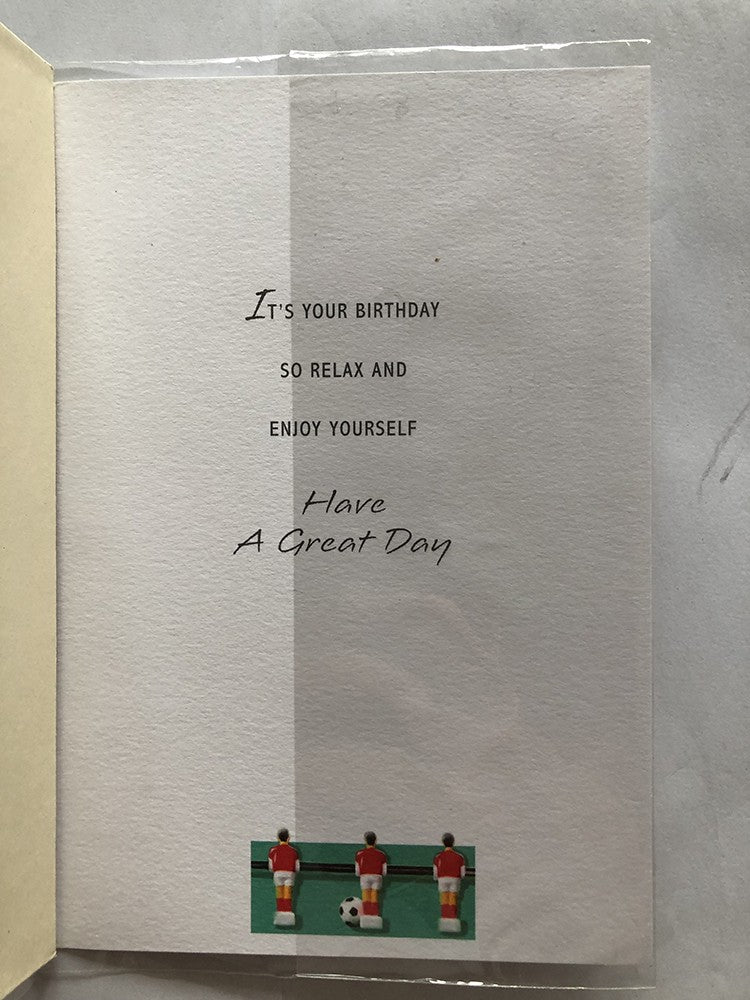 It's your birthday
so relax and
enjoy yourself
Have
A Great Day